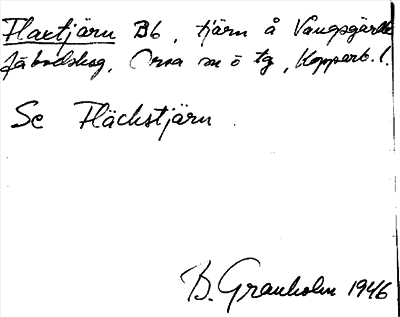 Flaxtjärn B6, tjärn å Vangsgärde
fäbodskog, Orsa sn ö tg, Kopparb. l.
Se Fläckstjärn.
B. Granholm 1946